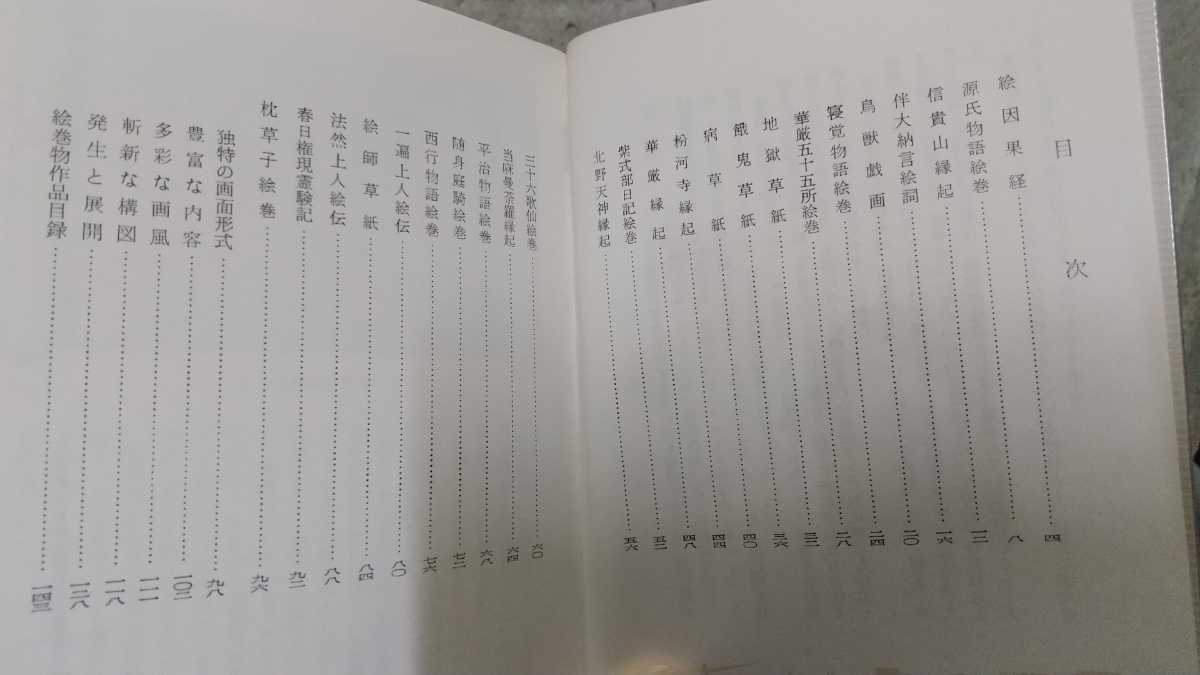 目次
絵因果経……四
源氏物語絵巻……八
信貴山縁起……一二
伴大納言絵詞……一六
鳥獣戯画……二〇
寝覚物語絵巻……二四
華厳五十五所絵巻……二八
地獄草紙……三二
餓鬼草紙……三六
病草紙……四〇
粉河寺縁起……四四
華厳縁起……四八
紫式部日記絵巻……五二
北野天神縁起……五六
三十六歌仙絵巻……六〇
当麻曼荼羅縁起……六四
平治物語絵巻……六八
随身庭騎絵巻……七二
西行物語絵巻……七六
一遍上人絵伝……八〇
絵師草紙……八四
法然上人絵伝……八八
春日権現霊験記……九二
枕草子絵巻……九六
独特の画面形式……九八
豊富な内容……一〇二
多彩な画風……一一一
斬新な構図……一一八
発生と展開……一三八
絵巻物作品目録……一四三